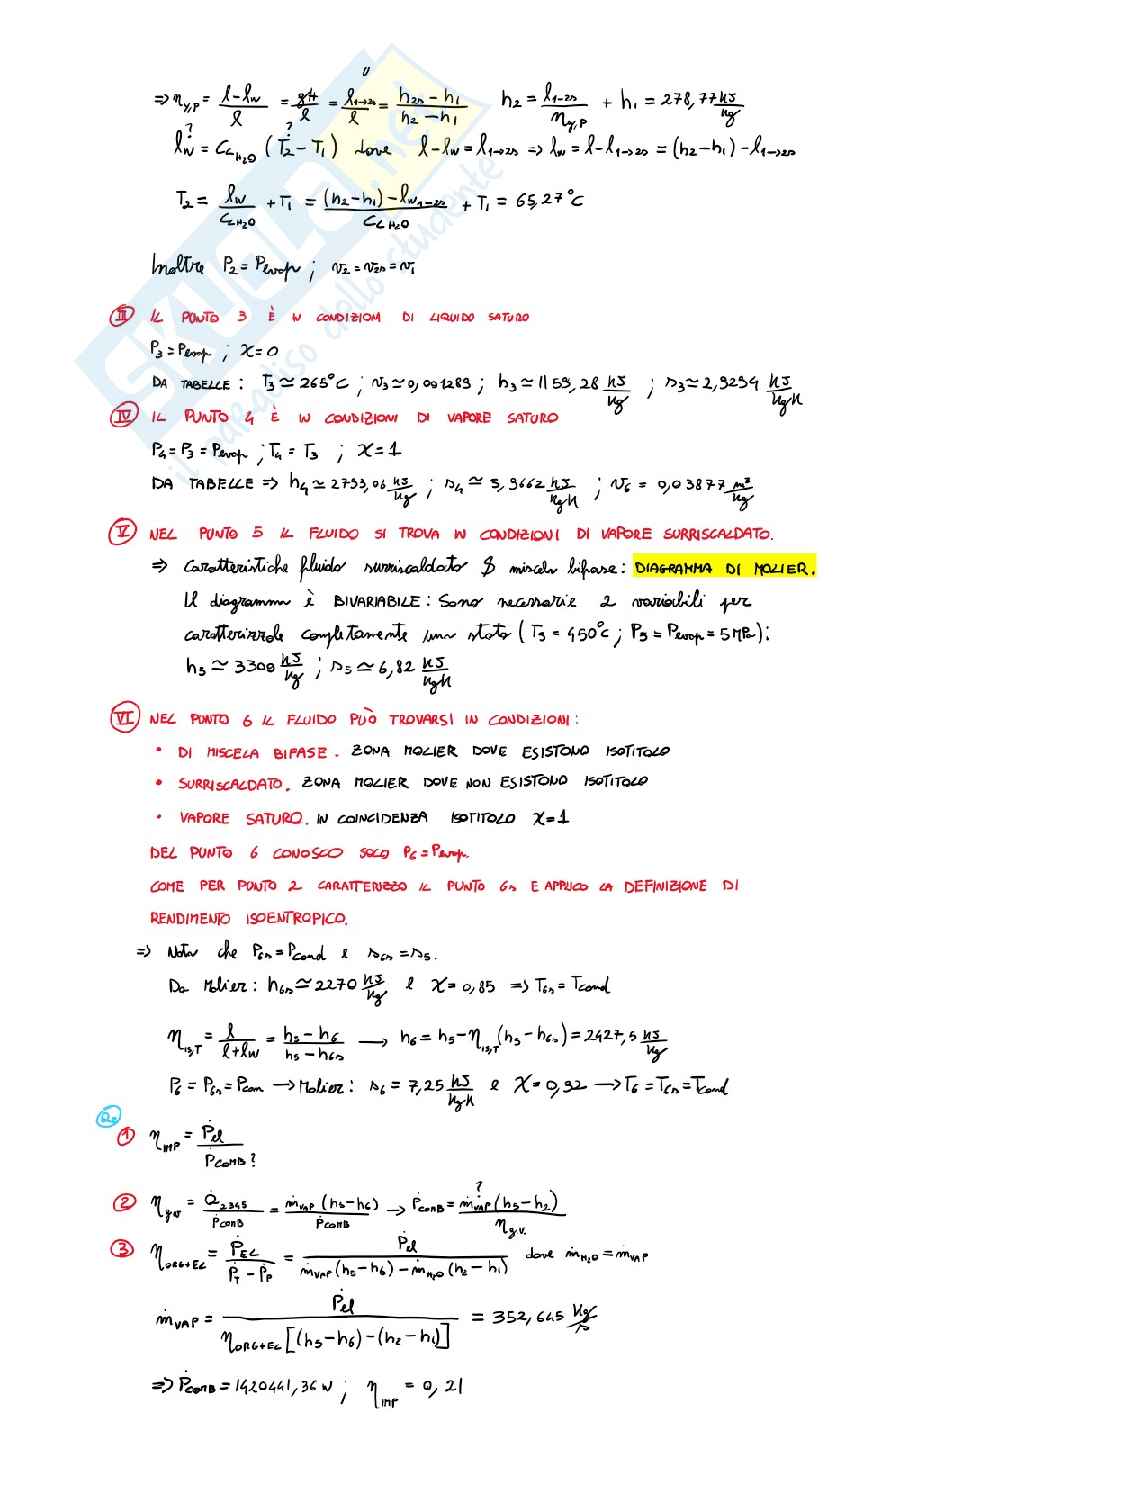 ⇒ η_y,p = (l - l_w)/l = gH/l = l_1→2s/l = (h_2s - h_1)/(h_2 - h_1)   h_2 = l_1-2s/η_y,p + h_1 = 278,77 kJ/kg
l_w = C_LH2O (T_2 - T_1) dove l - l_w = l_1→2s ⇒ l_w = l - l_1→2s = (h_2 - h_1) - l_1→2s
T_2 = l_w/C_LH2O + T_1 = ((h_2 - h_1) - l_w1-2s)/C_LH2O + T_1 = 65,27°C
Inoltre P_2 = P_evap ; v_2 = v_2s = v_1
III IL PUNTO 3 È IN CONDIZIONI DI LIQUIDO SATURO
P_3 = P_evap ; x = 0
DA TABELLE : T_3 ≃ 265°C ; v_3 ≃ 0,001289 ; h_3 ≃ 1159,28 kJ/kg ; s_3 ≃ 2,9294 kJ/kgK
IV IL PUNTO 4 È IN CONDIZIONI DI VAPORE SATURO
P_4 = P_3 = P_evap ; T_4 = T_3 ; x = 1
DA TABELLE ⇒ h_4 ≃ 2793,06 kJ/kg ; s_4 ≃ 5,9662 kJ/kgK ; v_6 = 0,03877 m³/kg
V NEL PUNTO 5 IL FLUIDO SI TROVA IN CONDIZIONI DI VAPORE SURRISCALDATO.
⇒ Caratteristiche fluido surriscaldato & miscela bifase : DIAGRAMMA DI MOLIER.
Il diagramma è BIVARIABILE : Sono necessarie 2 variabili per
caratterizzare completamente uno stato (T_5 = 450°C ; P_5 = P_evap = 5MPa) :
h_5 ≃ 3308 kJ/kg ; s_5 ≃ 6,82 kJ/kgK
VI NEL PUNTO 6 IL FLUIDO PUÒ TROVARSI IN CONDIZIONI :
• DI MISCELA BIFASE. ZONA MOLIER DOVE ESISTONO ISOTITOLO
• SURRISCALDATO. ZONA MOLIER DOVE NON ESISTONO ISOTITOLO
• VAPORE SATURO. IN COINCIDENZA ISOTITOLO X=1
DEL PUNTO 6 CONOSCO SOLO P_6 = P_evap.
COME PER PUNTO 2 CARATTERIZZO IL PUNTO 6s E APPLICO LA DEFINIZIONE DI
RENDIMENTO ISOENTROPICO.
⇒ Nota che P_6s = P_cond e s_6s = s_5.
Da Molier : h_6s ≃ 2270 kJ/kg e x = 0,85 ⇒ T_6s = T_cond
η_is,T = l/(l + l_w) = (h_5 - h_6)/(h_5 - h_6s) → h_6 = h_5 - η_is,T (h_5 - h_6s) = 2427,5 kJ/kg
P_6 = P_6s = P_con → Molier : s_6 = 7,25 kJ/kgK e x = 0,92 → T_6 = T_6s = T_cond
1 η_IMP = P_el/P_COMB ?
2 η_gv = Q_2345/P_COMB = ṁ_VAP (h_5 - h_6)/P_COMB → P_COMB = ṁ_VAP (h_5 - h_2)/η_g.v.
3 η_ORG+EL = P_EL/(P_T - P_P) = P_el/(ṁ_VAP (h_5 - h_6) - ṁ_H2O (h_2 - h_1)) dove ṁ_H2O = ṁ_VAP
ṁ_VAP = P_el/(η_ORG+EL [(h_5 - h_6) - (h_2 - h_1)]) = 352,645 kg/s
⇒ P_COMB = 1420441,36 W ; η_IMP = 0,21
SKUOLA.net
il paradiso dello studente